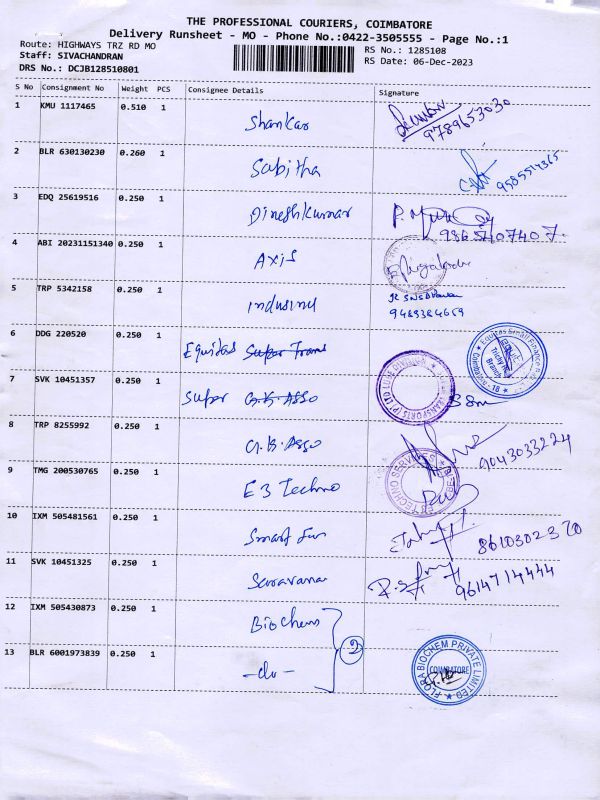 THE PROFESSIONAL COURIERS, COIMBATORE
Delivery Runsheet - MO - Phone No.:0422-3505555 - Page No.:1
Route: HIGHWAYS TRZ RD MO
RS No.: 1285108
Staff: SIVACHANDRAN
RS Date: 06-Dec-2023
DRS No.: DCJB128510801
S No Consignment No Weight PCS Consignee Details Signature
1 KMU 1117465 0.510 1 Shankar
9789653030
2 BLR 630130230 0.260 1 Sabitha
3 EDQ 25619516 0.250 1 Dineshkumar
9865707407.
4 ABI 20231151340 0.250 1 Axis
5 TRP 5342158 0.250 1 Indusind
9489384659
6 DDG 220520 0.250 1 Equitas Super Trans
7 SVK 10451357 0.250 1 Super G.B. Asso
8 TRP 8255992 0.250 1 G.B. Asso
9043033224
9 TMG 200530765 0.250 1 E3 Techno
10 IXM 505481561 0.250 1 Smart Fun
8610302320
11 SVK 10451325 0.250 1 Saravana
9614714444
12 IXM 505430873 0.250 1 Biochem
13 BLR 6001973839 0.250 1 -do-
2
FLORA BIOCHEM PRIVATE LIMITED
COIMBATORE